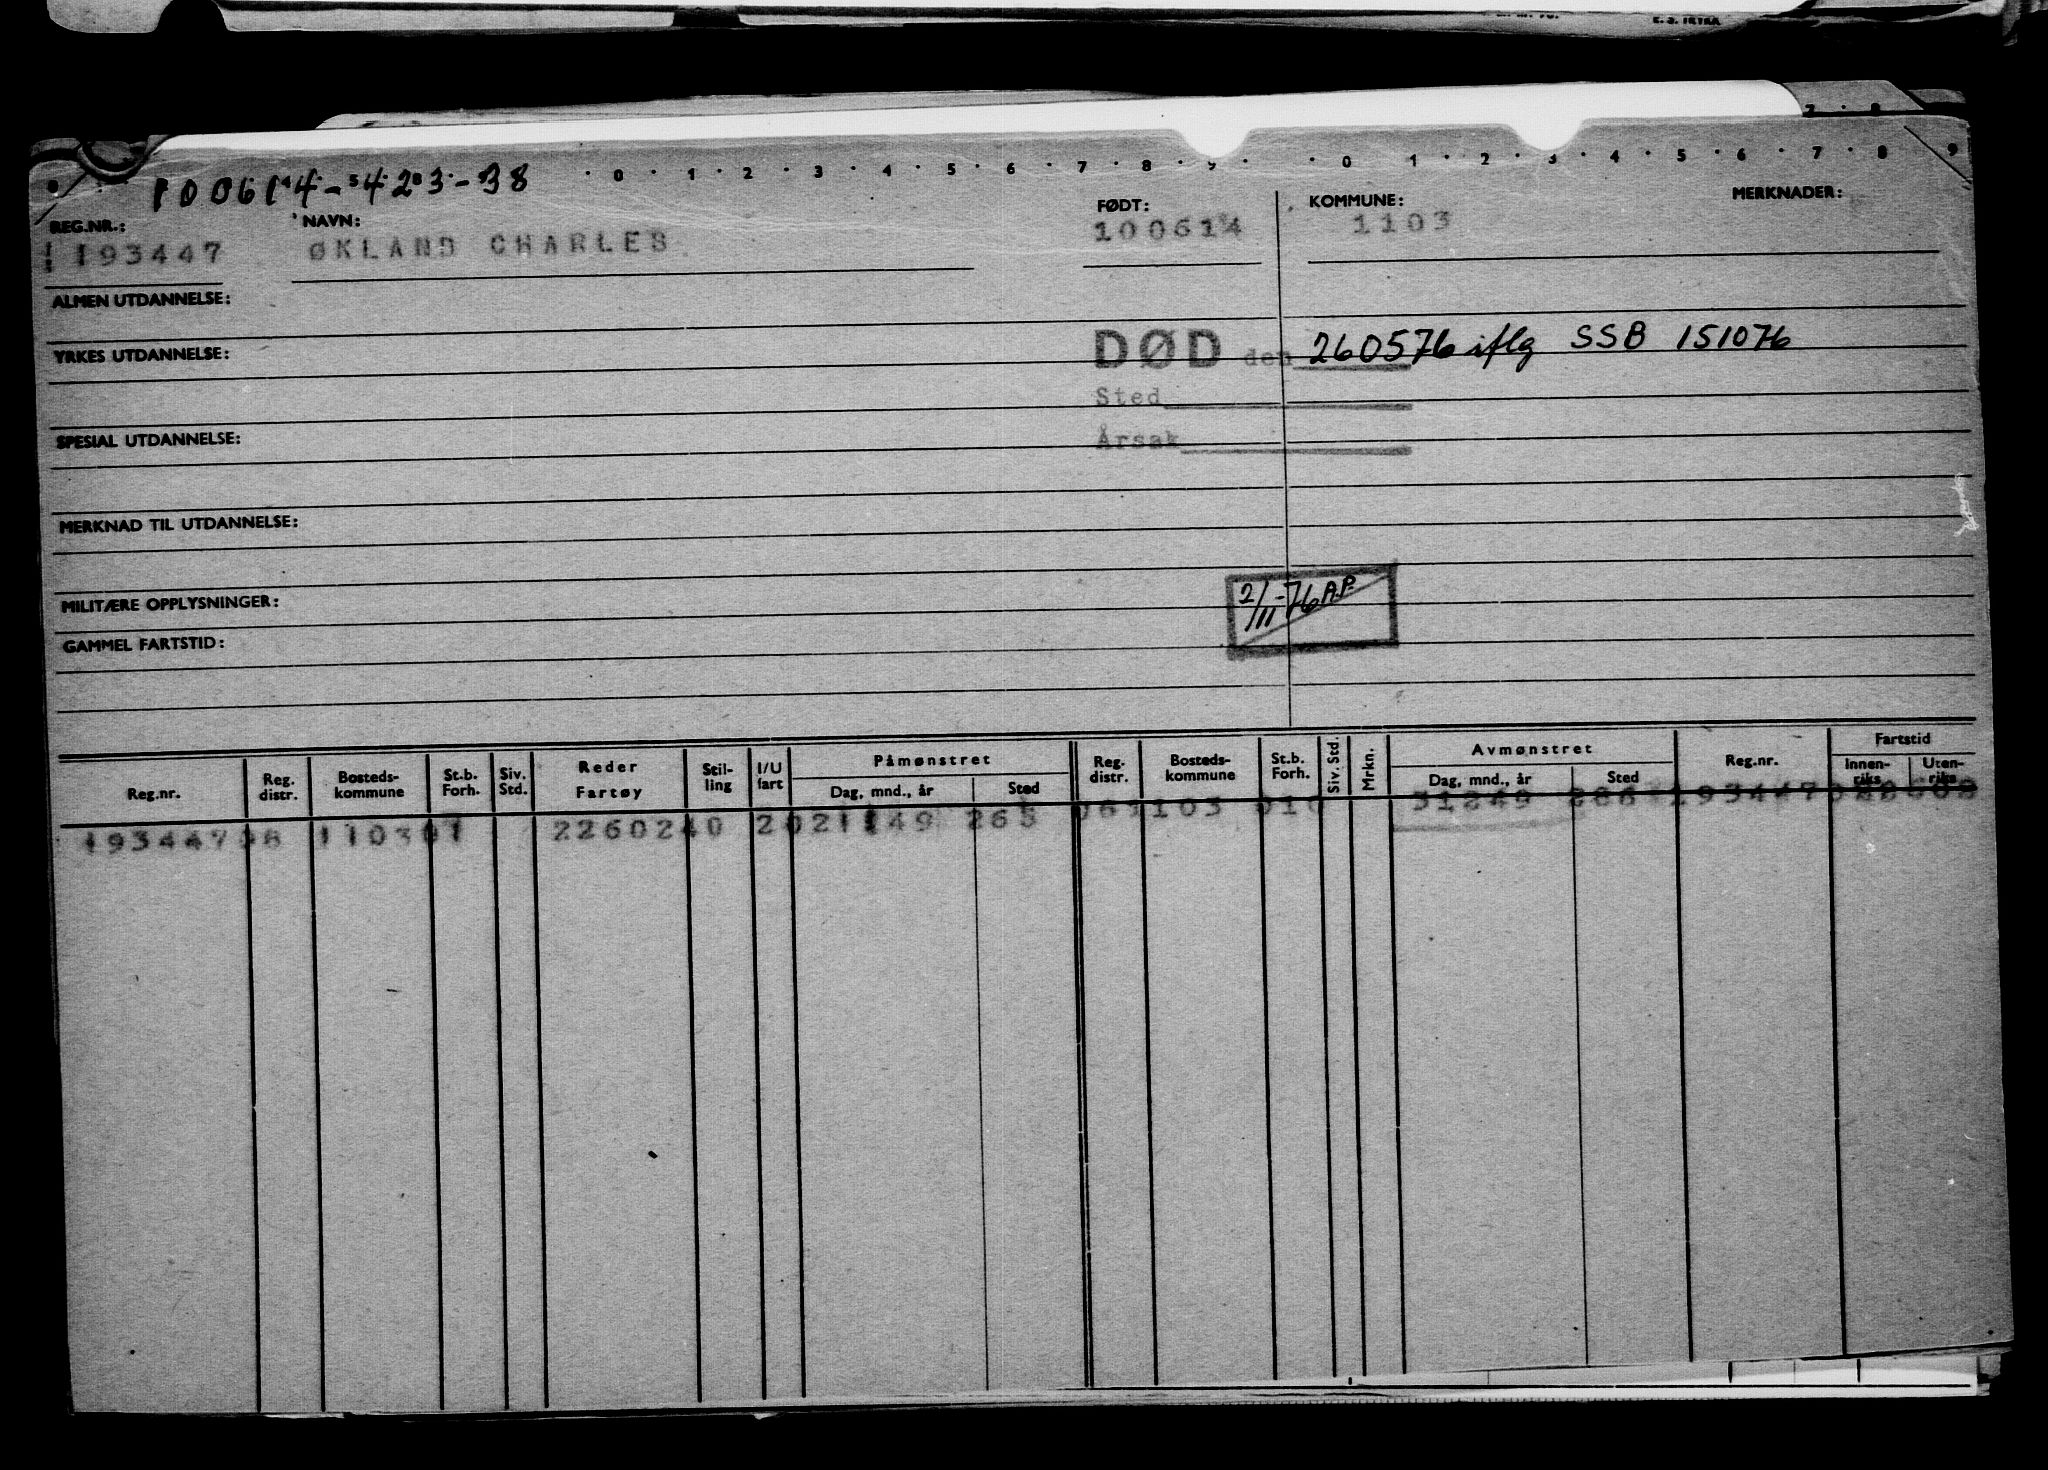 E. S. IRTRA
7 · 8
100614-54283-38
0 · 1 · 2 · 3 · 4 · 5 · 6 · 7 · 8 · 9 · · 0 · 1 · 2 · 3 · 4 · 5 · 6 · 7 · 8 · 9
REG.NR.: NAVN: FØDT: KOMMUNE: MERKNADER:
193447 ØKLAND CHARLES 100614 1103
ALMEN UTDANNELSE:
YRKES UTDANNELSE:
DØD den 260576 iflg SSB 151076
Sted
Årsak
SPESIAL UTDANNELSE:
MERKNAD TIL UTDANNELSE:
MILITÆRE OPPLYSNINGER:
2/11-76 A.P.
GAMMEL FARTSTID:
Reg.nr. Reg. distr. Bosteds-kommune St.b. Forh. Siv. Std. Reder Fartøy Stil-ling I/U fart Påmønstret Dag, mnd., år Sted Reg. distr. Bosteds-kommune St.b. Forh. Siv. Std. Mrkn. Avmønstret Dag, mnd., år Sted Reg.nr. Fartstid Innen-riks Uten-riks
193447 08 1103 01 2260240 2 021149 265 06 1103 010 31249 266 193447